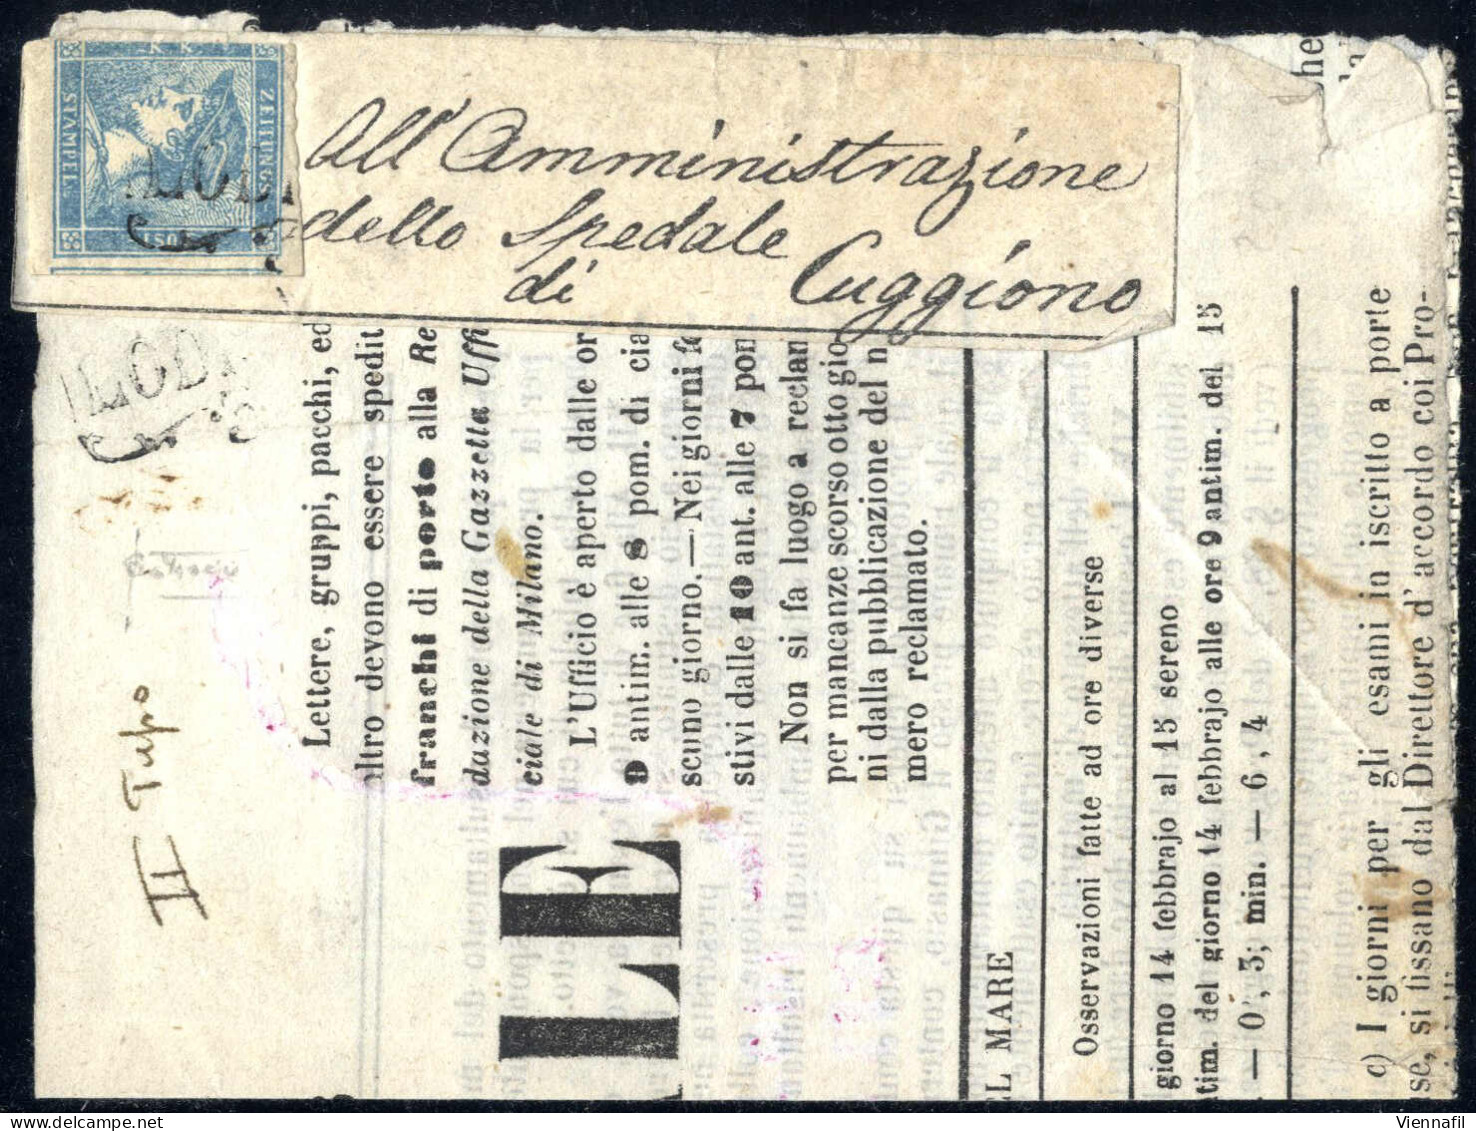 K. K.
ZEITUNGS
STAMPEL
All' Amministrazione
dello Spedale
di Cuggiono
LODI
LODI
II Tipo
Lettere, gruppi, pacchi, ed
altro devono essere spedit
franchi di porto alla Re
dazione della Gazzetta Uffi
ciale di Milano.
L'Ufficio è aperto dalle or
9 antim. alle 8 pom. di cia
scuno giorno.—Nei giorni fe
stivi dalle 10 ant. alle 7 pom
Non si fa luogo a reclam
per mancanze scorso otto gior
ni dalla pubblicazione del n
mero reclamato.
LE
L MARE
Osservazioni fatte ad ore diverse
giorno 14 febbrajo al 15 sereno
tim. del giorno 14 febbrajo alle ore 9 antim. del 15
— 0, 3; min. — 6, 4
c) I giorni per gli esami in iscritto a porte
se, si fissano dal Direttore d'accordo coi Pro-
Viennafil